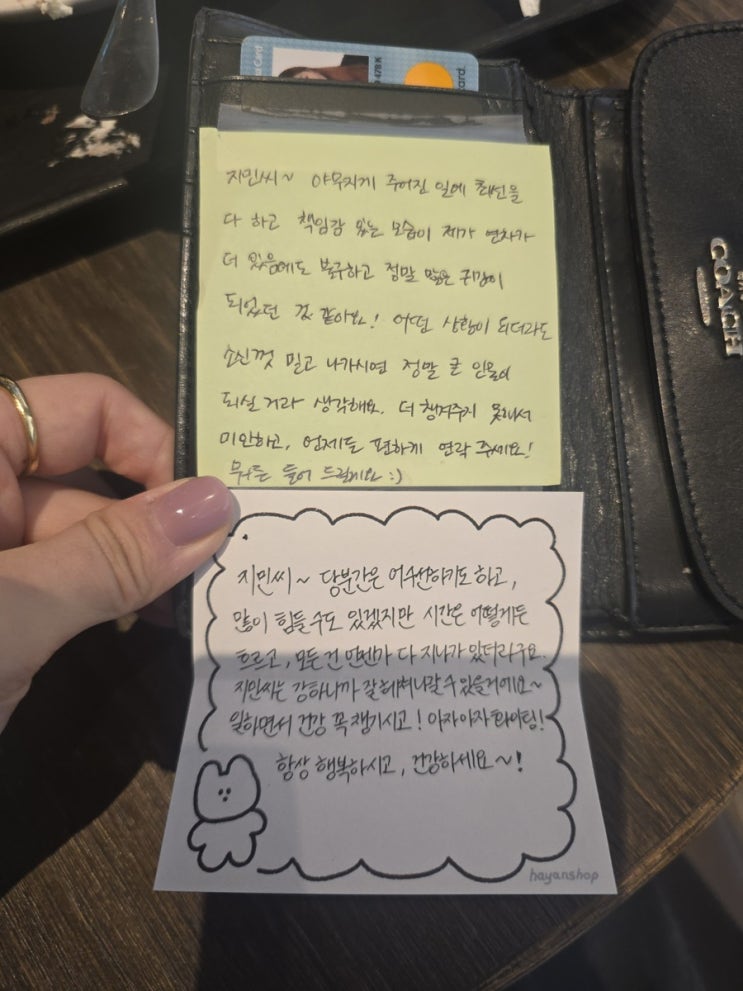 지민씨~ 야무지게 주어진 일에 최선을
다 하고 책임감 있는 모습이 제가 연차가
더 있음에도 불구하고 정말 많은 귀감이
되었던 것 같아요! 어떤 상황이 되더라도
소신껏 밀고 나가시면 정말 큰 인물이
되실 거라 생각해요. 더 챙겨주지 못해서
미안하고, 언제든 편하게 연락 주세요!
뭐든 들어 드릴게요 :)
지민씨~ 당분간은 어수선하기도 하고,
많이 힘들 수도 있겠지만 시간은 어떻게든
흐르고, 모든 건 언젠가 다 지나가 있더라구요.
지민씨는 강하니까 잘 헤쳐나갈 수 있을거에요~
일하면서 건강 꼭 챙기시고! 아자아자 화이팅!
항상 행복하시고, 건강하세요~!
hayanshop
COACH